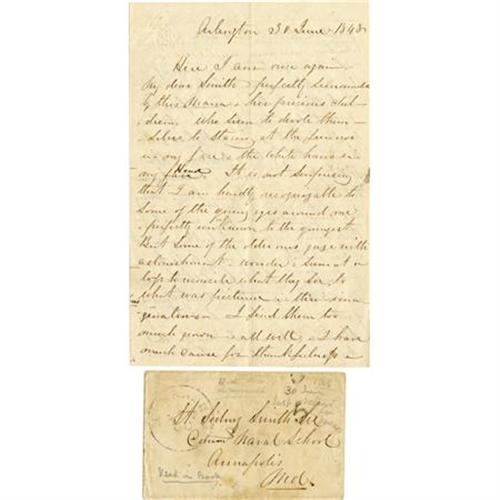 Arlington 30 June 1848
Here I am once again
My dear Smith, perfectly surrounded
by Mary & her precious chil-
dren, who seem to devote them-
selves to staring at the furrows
in my face & the white hairs in
my face Head. It is not surprising
that I am hardly recognizable to
some of the young eyes around me
& perfectly unknown to the youngest
But some of the older ones gaze with
astonishment & wonder & seem at a
loss to reconcile what they see, to
what was pictured in their ima-
ginations. I find them too
much grown & all well & I have
much cause for thankfulness &
30 June
Lt. Sidney Smith Lee
Comm. Naval School
Annapolis
Md.